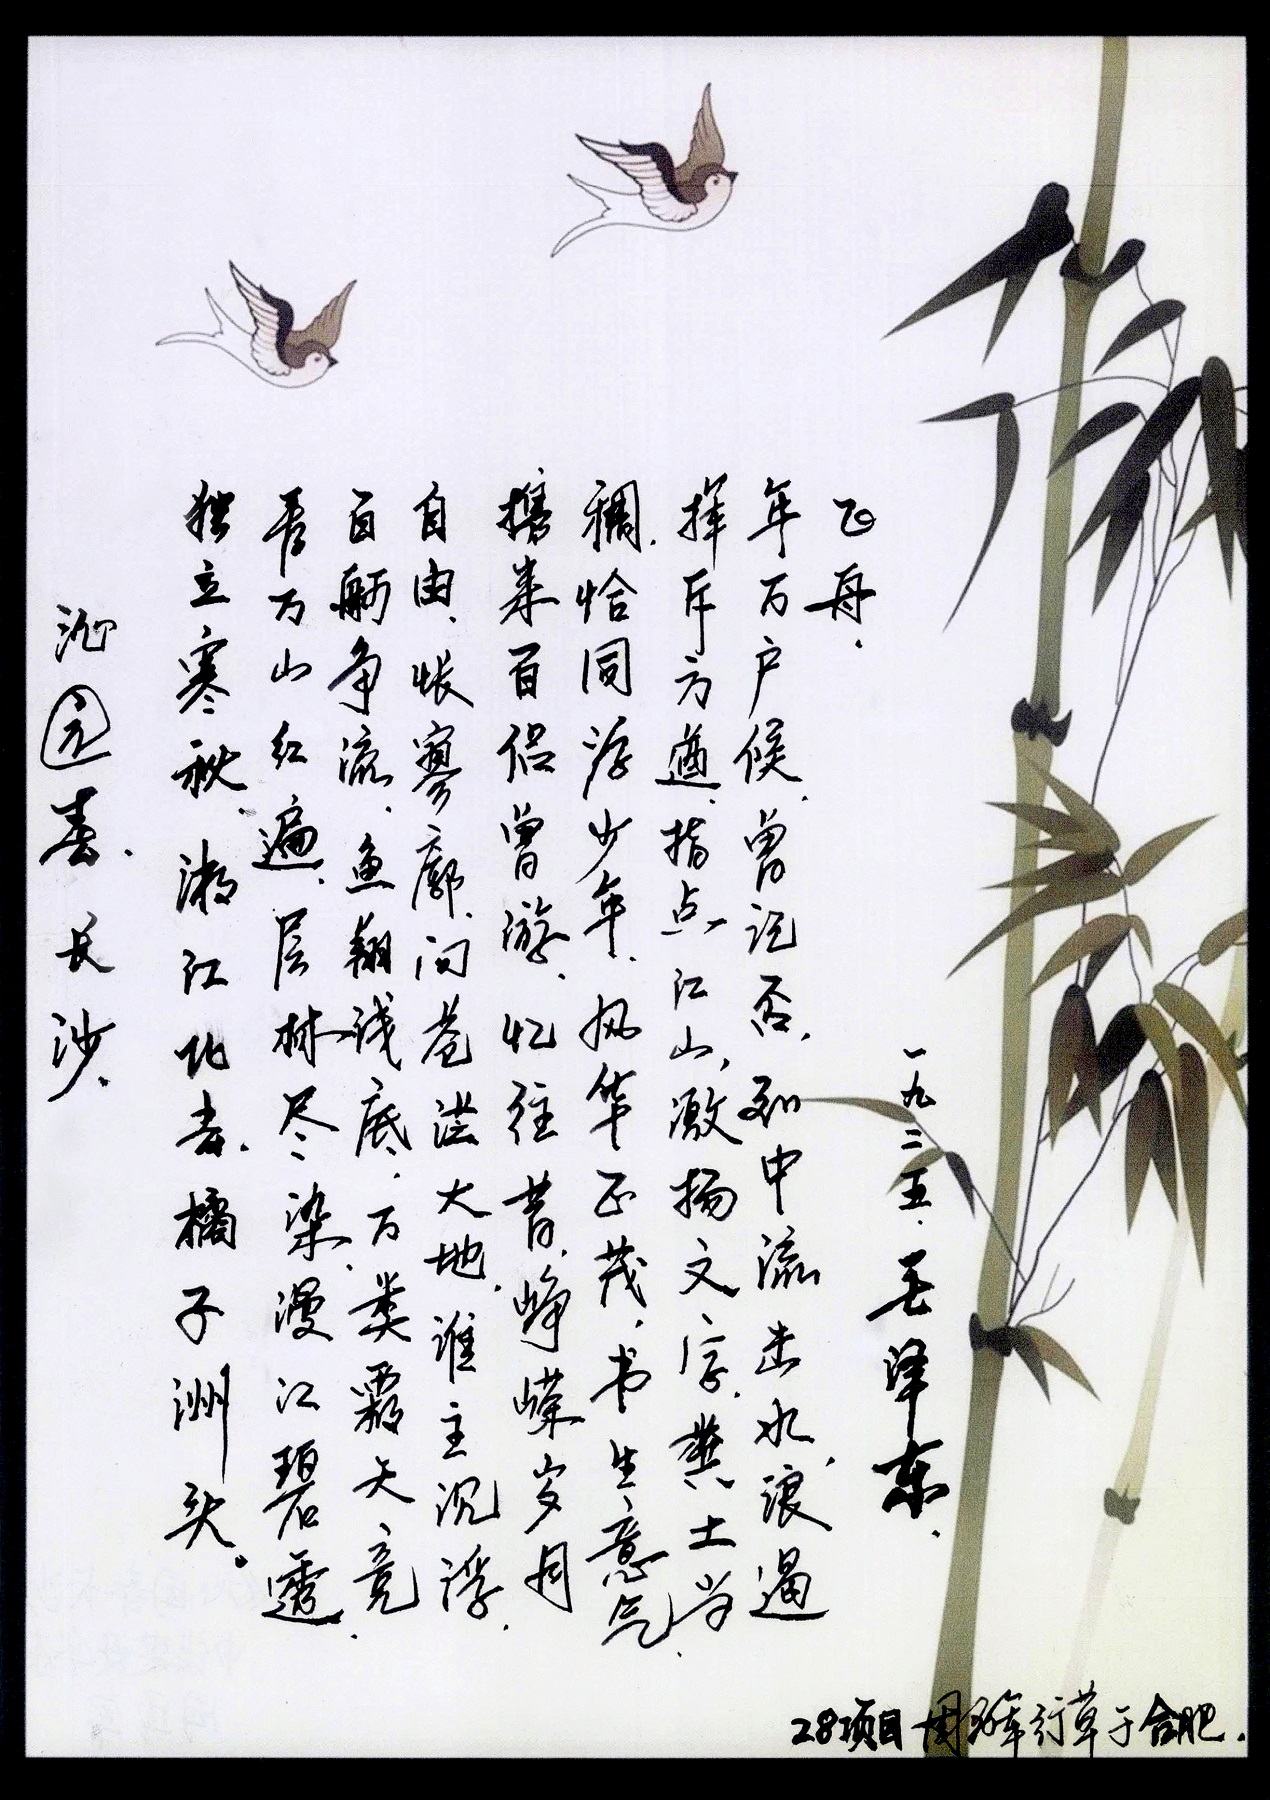 沁园春.长沙.
独立寒秋.湘江北去.橘子洲头。
看万山红遍.层林尽染.漫江碧透.
百舸争流.鱼翔浅底.万类霜天竞
自由.怅寥廓.问苍茫大地.谁主沉浮.
携来百侣曾游.忆往昔.峥嵘岁月
稠.恰同学少年.风华正茂.书生意气.
挥斥方遒.指点江山,激扬文字.粪土当
年万户侯.曾记否,到中流击水,浪遏
飞舟.
一九二五.毛泽东.
28项目 周 军行草于合肥.